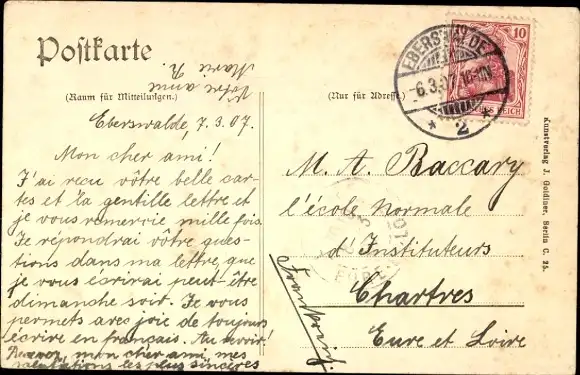 Postkarte
(Raum für Mitteilungen.)
(Nur für Adresse.)
Eberswalde, 7.3.07.
Mon cher ami!
J'ai reçu vôtre belle car-
tes et la gentille lettre et
je vous remercie mille fois.
Je répondrai vôtre ques-
tions dans ma lettre, que
je vous écrirai peut-être
dimanche soir. Je vous
permets avec joie de toujours
écrire en français. Au revoir!
Recevez, mon cher ami, mes
salutations les plus sincères
Vôtre amie
Marie R.
M. A. Baccary
l'école Normale
d'Instituteurs
Chartres
Eure et Loire
Frankreich.
EBERSWALDE
-6.3.07.
* 2 *
10
REICH
Kunstverlag J. Goldiner, Berlin C. 25.